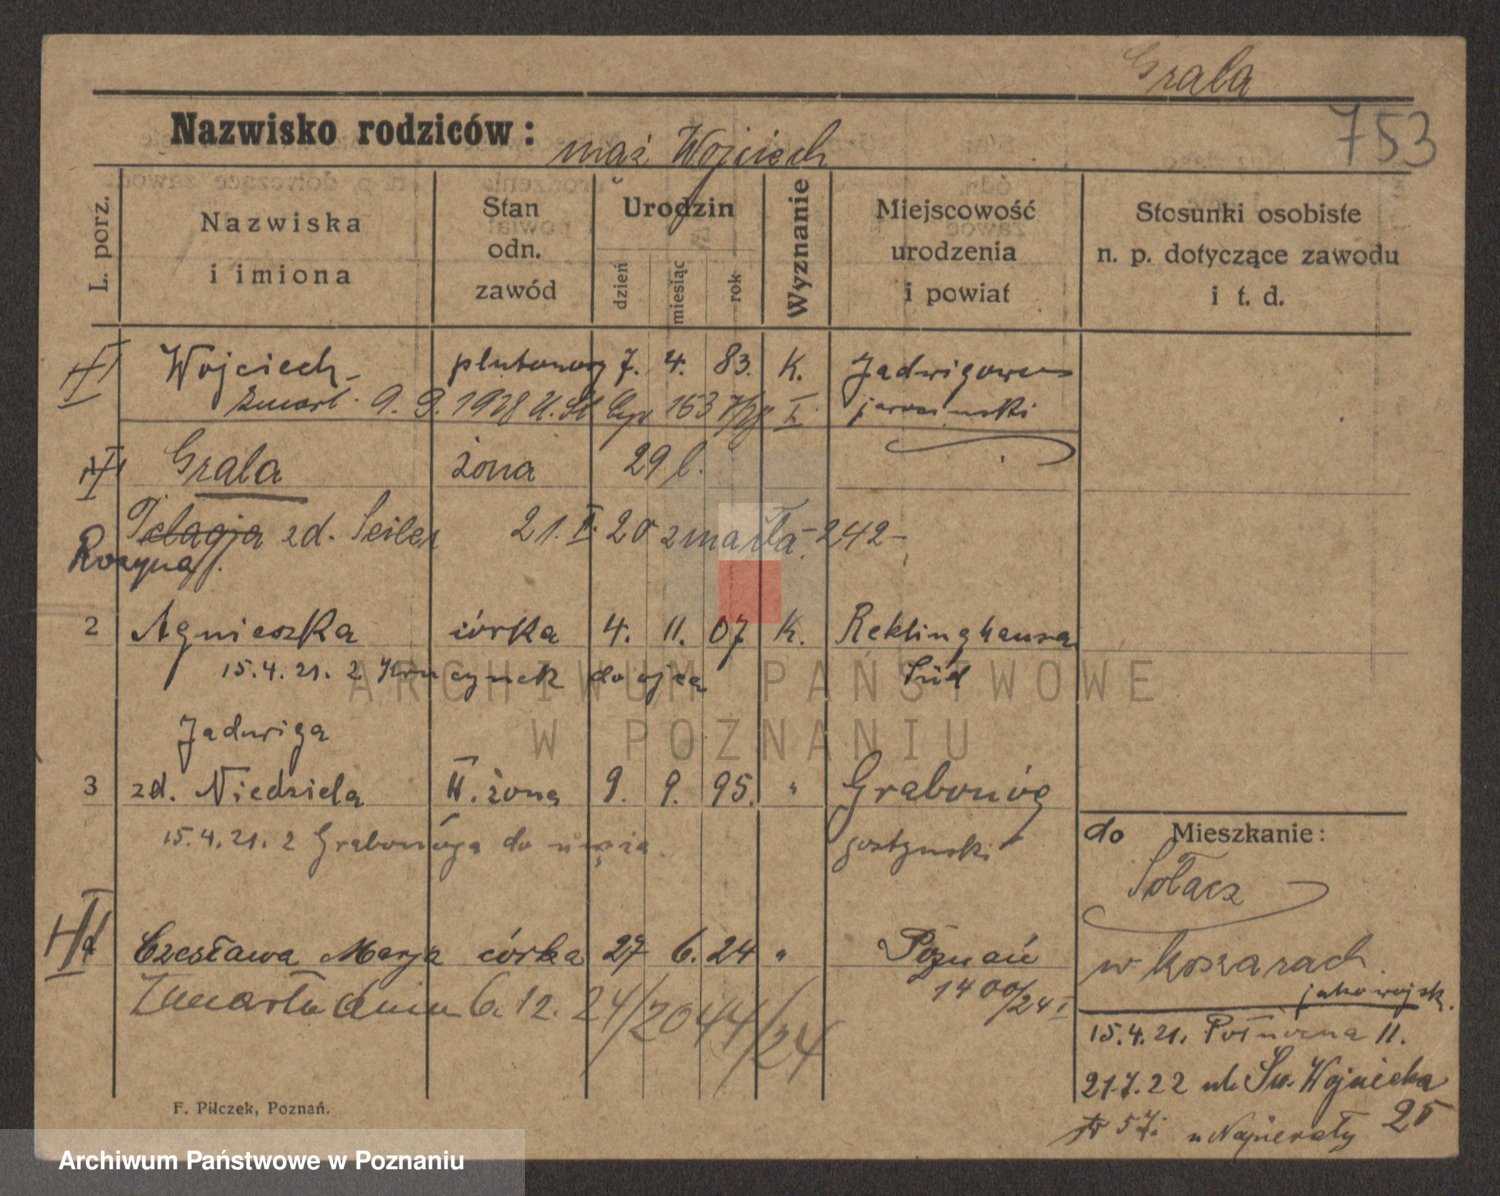 Grala
753
Nazwisko rodziców: mąż Wojciech
L. porz.
Nazwiska i imiona
Stan odn. zawód
Urodzin
dzień miesiąc rok
Wyznanie
Miejscowość urodzenia i powiat
Stosunki osobiste n. p. dotyczące zawodu i t. d.
Wojciech plutonowy 7. 4. 83. K. Jadwigowo
Zmarł. 9. 9. 1928 163 I. jarociński
Grala żona 29 l.
Pelagja zd. Seiler 21. I. 20 zmarła - 242 -
Rozyna
2 Agnieszka córka 4. 11. 07 K. Reklinghausen
15.4.21. z do ojca Süd
Jadwiga
3 zd. Niedziela II. żona 9. 9. 95. " Grabonóg
15.4.21. z Grabonóga do męża gostyński
do Mieszkanie:
Sołacz
4 Czesława Marja córka 27 6. 24 " Poznań
w koszarach
Zmarła dnia 6. 12. 24/2044/24 1400/24 I
jako wojsk.
15.4.21. Północna 11.
21.7.22 ul. Św. Wojciecha 25
u Napierały
F. Pilczek, Poznań.
ARCHIWUM PAŃSTWOWE
W POZNANIU
Archiwum Państwowe w Poznaniu